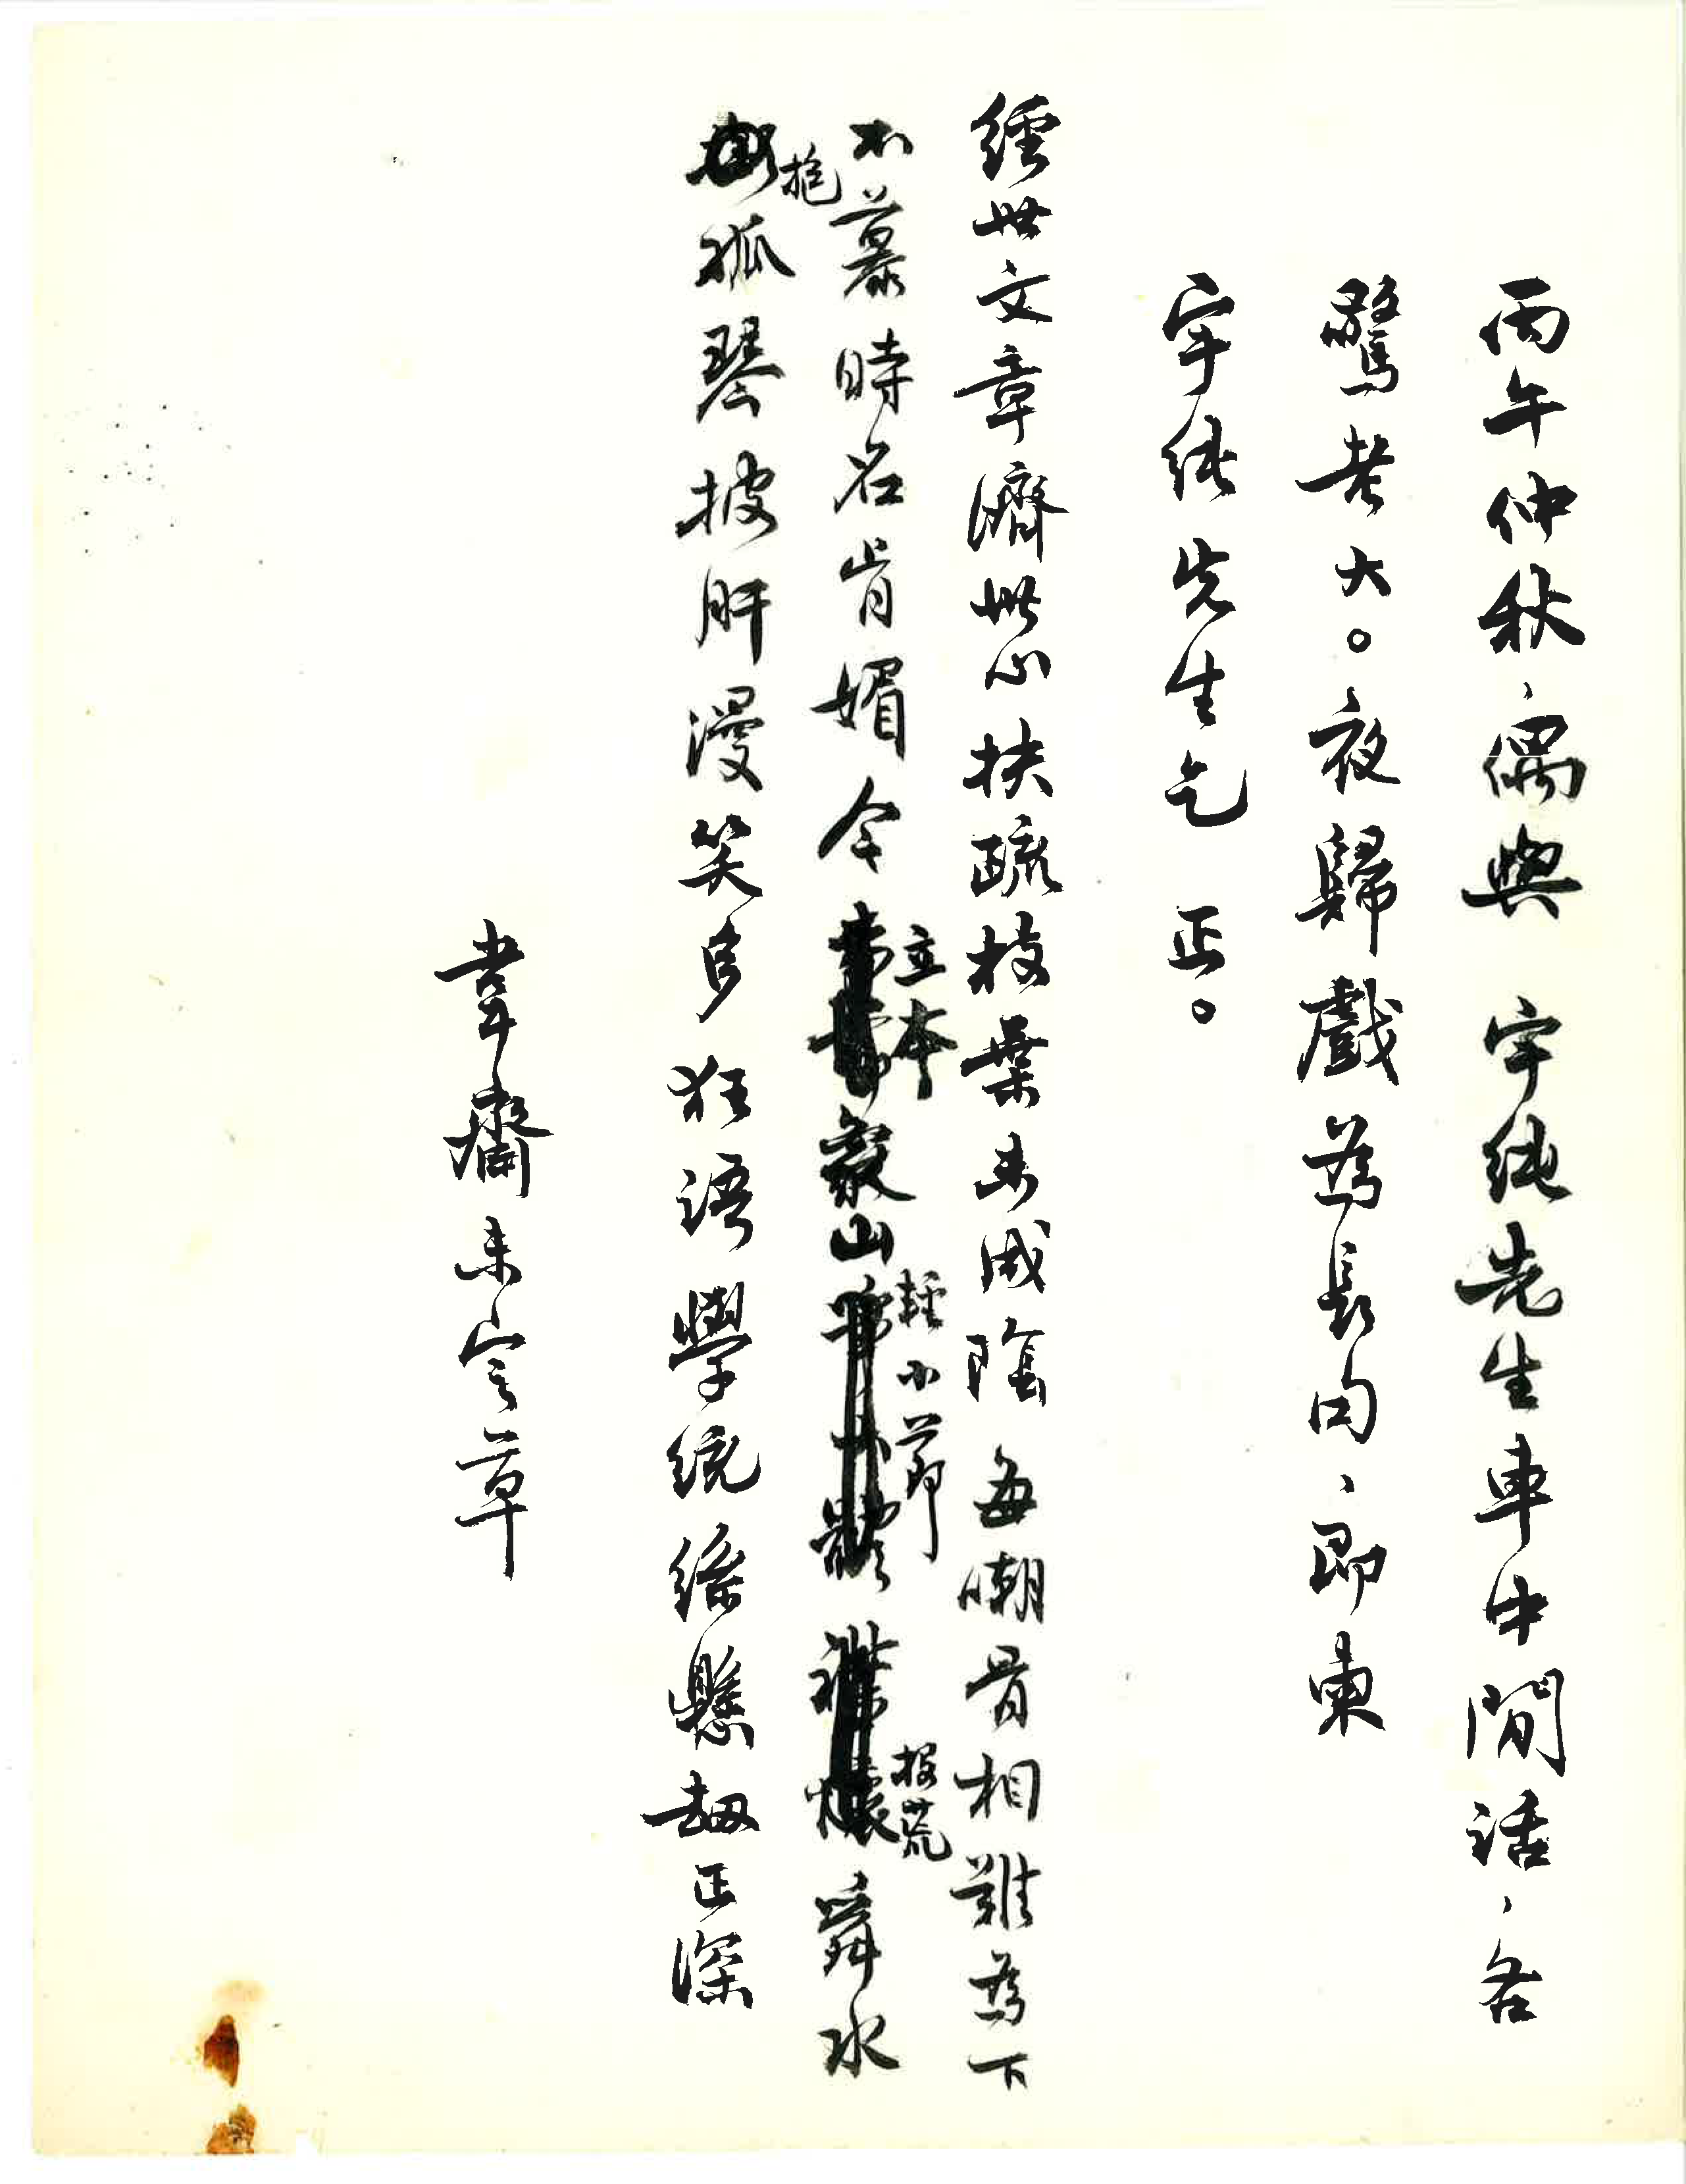 丙午仲秋,偶與 宇純先生車中閒話,各
驚老大。夜歸戲為長句,即柬
宇純先生乞 正。
經世文章濟世心扶疏枝葉未成陰每嘲骨相難為下
不慕時名肯媚今立本敦山輕小節投荒舜水
抱孤琴披肝漫笑多狂語學統絲懸劫正深
韋齋未定草